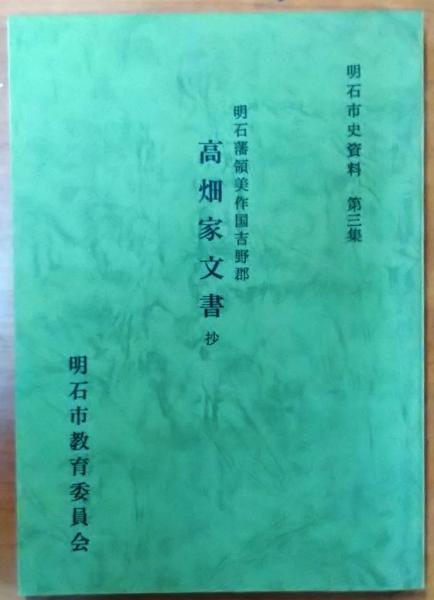 明石市史資料　第三集
明石藩領美作国吉野郡
高畑家文書 抄
明石市教育委員会